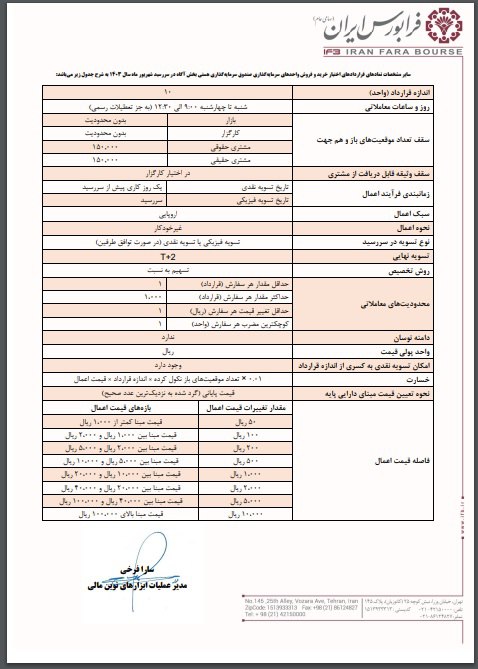 فرابورس ایران (سهامی عام)
IFB IRAN FARA BOURSE
سایر مشخصات نمادهای قراردادهای اختیار خرید و فروش واحدهای سرمایه‌گذاری صندوق سرمایه‌گذاری هستی بخش آگاه در سررسید شهریور ماه سال ۱۴۰۳ به شرح جدول زیر می‌باشد:
اندازه قرارداد (واحد) ۱۰
روز و ساعات معاملاتی شنبه تا چهارشنبه ۹:۰۰ الی ۱۲:۳۰ (به جز تعطیلات رسمی)
سقف تعداد موقعیت‌های باز و هم جهت
بازار بدون محدودیت
کارگزار بدون محدودیت
مشتری حقوقی ۱۵۰،۰۰۰
مشتری حقیقی ۱۵۰،۰۰۰
سقف وثیقه قابل دریافت از مشتری در اختیار کارگزار
زمانبندی فرآیند اعمال
تاریخ تسویه نقدی یک روز کاری پیش از سررسید
تاریخ تسویه فیزیکی سررسید
سبک اعمال اروپایی
نحوه اعمال غیرخودکار
نوع تسویه در سررسید تسویه فیزیکی یا تسویه نقدی (در صورت توافق طرفین)
تسویه نهایی T+2
روش تخصیص تسهیم به نسبت
محدودیت‌های معاملاتی
حداقل مقدار هر سفارش (قرارداد) ۱
حداکثر مقدار هر سفارش (قرارداد) ۱،۰۰۰
حداقل تغییر قیمت هر سفارش (ریال) ۱
کوچکترین مضرب هر سفارش (واحد) ۱
دامنه نوسان ندارد
واحد پولی قیمت ریال
امکان تسویه نقدی به کسری از اندازه قرارداد وجود دارد
خسارت ۰.۰۱ × تعداد موقعیت‌های باز نکول کرده × اندازه قرارداد × قیمت اعمال
نحوه تعیین قیمت مبنای دارایی پایه قیمت پایانی (گرد شده به نزدیک‌ترین عدد صحیح)
فاصله قیمت اعمال
مقدار تغییرات قیمت اعمال بازه‌های قیمت اعمال
۵۰ ریال قیمت مبنا کمتر از ۱،۰۰۰ ریال
۱۰۰ ریال قیمت مبنا بین ۱،۰۰۰ ریال و ۲،۰۰۰ ریال
۲۰۰ ریال قیمت مبنا بین ۲،۰۰۰ ریال و ۵،۰۰۰ ریال
۵۰۰ ریال قیمت مبنا بین ۵،۰۰۰ ریال و ۱۰،۰۰۰ ریال
۱،۰۰۰ ریال قیمت مبنا بین ۱۰،۰۰۰ ریال و ۲۰،۰۰۰ ریال
۲،۰۰۰ ریال قیمت مبنا بین ۲۰،۰۰۰ ریال و ۴۰،۰۰۰ ریال
۵،۰۰۰ ریال قیمت مبنا بین ۴۰،۰۰۰ ریال و ۱۰۰،۰۰۰ ریال
۱۰،۰۰۰ ریال قیمت مبنا بالای ۱۰۰،۰۰۰ ریال
سارا فرخی
مدیر عملیات ابزارهای نوین مالی
www.ifb.ir
No.145 ,25th Alley, Vozara Ave, Tehran, Iran
ZipCode: 1513933313 Fax: +98 (21) 86124827
Tel: + 98 (21) 42150000